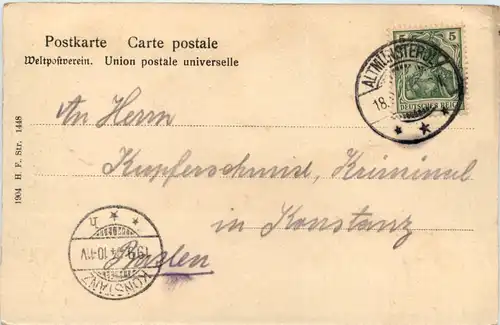 Postkarte Carte postale
Weltpostverein. Union postale universelle
5
DEUTSCHES REICH
ALTMÜNSTEROL
18.
An Herrn
Kupferschmid, Kriminal
in Konstanz
Baden
KONSTANZ
10-11V
1904 H. F. Str. 1448